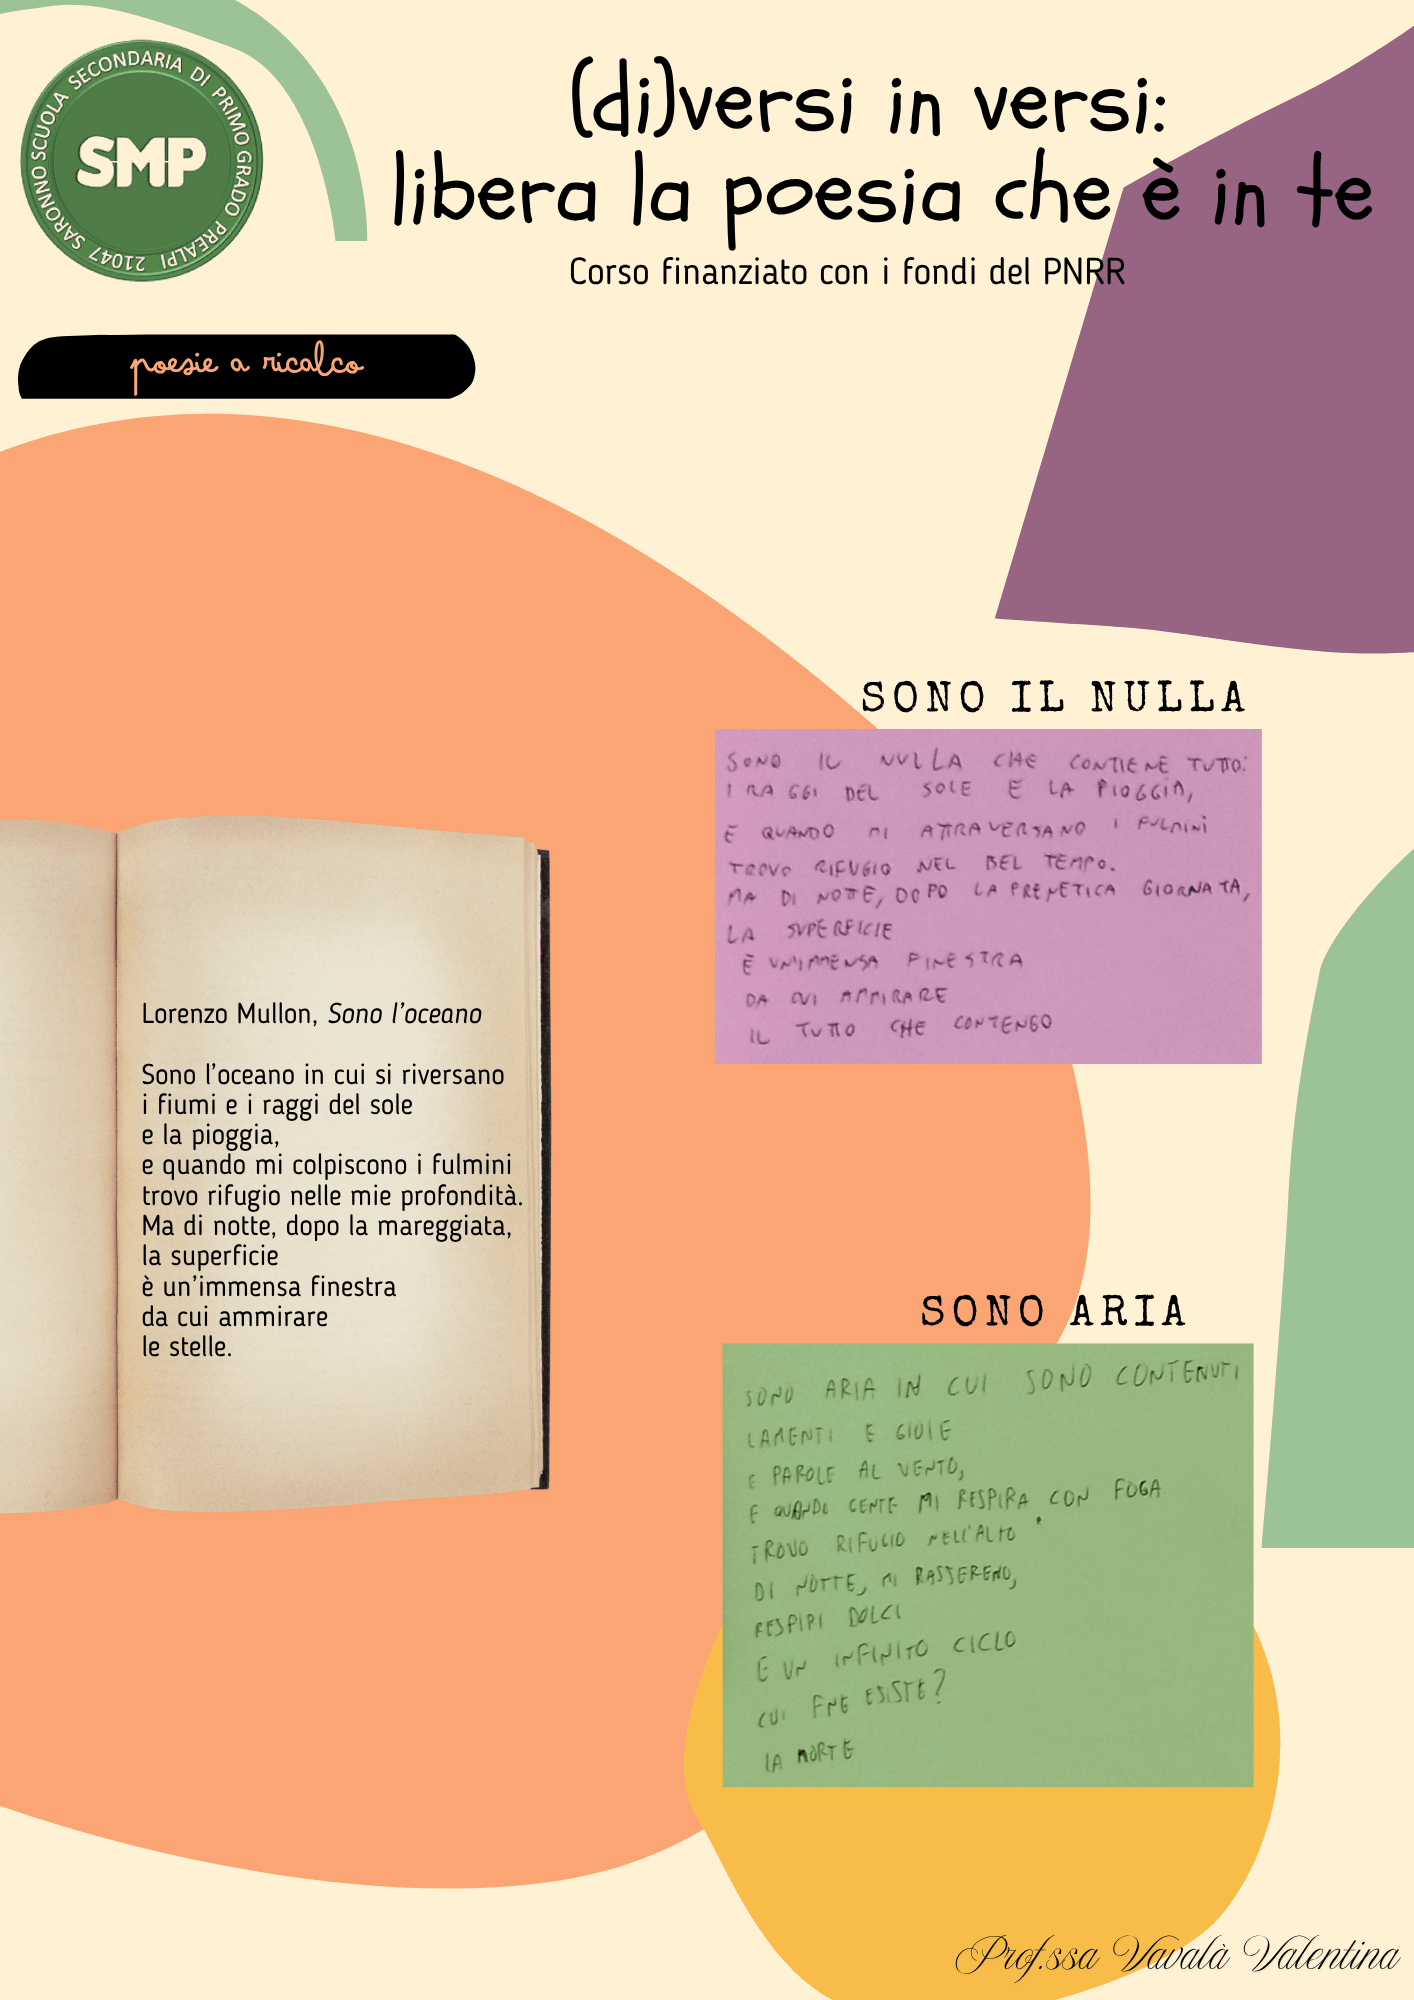 SCUOLA SECONDARIA DI PRIMO GRADO PREALPI 21047 SARONNO
SMP
(di)versi in versi:
libera la poesia che è in te
Corso finanziato con i fondi del PNRR
poesie a ricalco
SONO IL NULLA
SONO IL NULLA CHE CONTIENE TUTTO:
I RAGGI DEL SOLE E LA PIOGGIA,
E QUANDO MI ATTRAVERSANO I FULMINI
TROVO RIFUGIO NEL BEL TEMPO.
MA DI NOTTE, DOPO LA FRENETICA GIORNATA,
LA SUPERFICIE
È UN'IMMENSA FINESTRA
DA CUI AMMIRARE
IL TUTTO CHE CONTENGO
Lorenzo Mullon, Sono l'oceano
Sono l'oceano in cui si riversano
i fiumi e i raggi del sole
e la pioggia,
e quando mi colpiscono i fulmini
trovo rifugio nelle mie profondità.
Ma di notte, dopo la mareggiata,
la superficie
è un'immensa finestra
da cui ammirare
le stelle.
SONO ARIA
SONO ARIA IN CUI SONO CONTENUTI
LAMENTI E GIOIE
E PAROLE AL VENTO,
E QUANDO GENTE MI RESPIRA CON FOGA
TROVO RIFUGIO NELL'ALTO
DI NOTTE, MI RASSERENO,
RESPIRI DOLCI
E UN INFINITO CICLO
CUI FINE ESISTE?
LA MORTE
Prof.ssa Vavalà Valentina